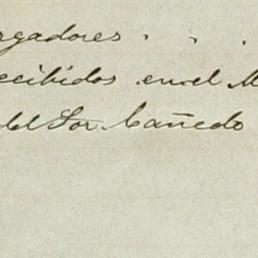 rgadores . . .
ecibidos en el M
del Sor. Cañedo